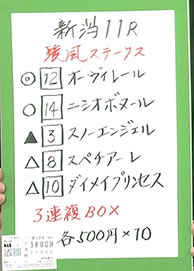 新潟11R
驀風ステークス
◎ 12 オーヴィレール
○ 14 ニシオボヌール
▲ 3 スノーエンジェル
△ 8 スペチアーレ
△ 10 ダイメイプリンセス
3連複BOX
各500円×10